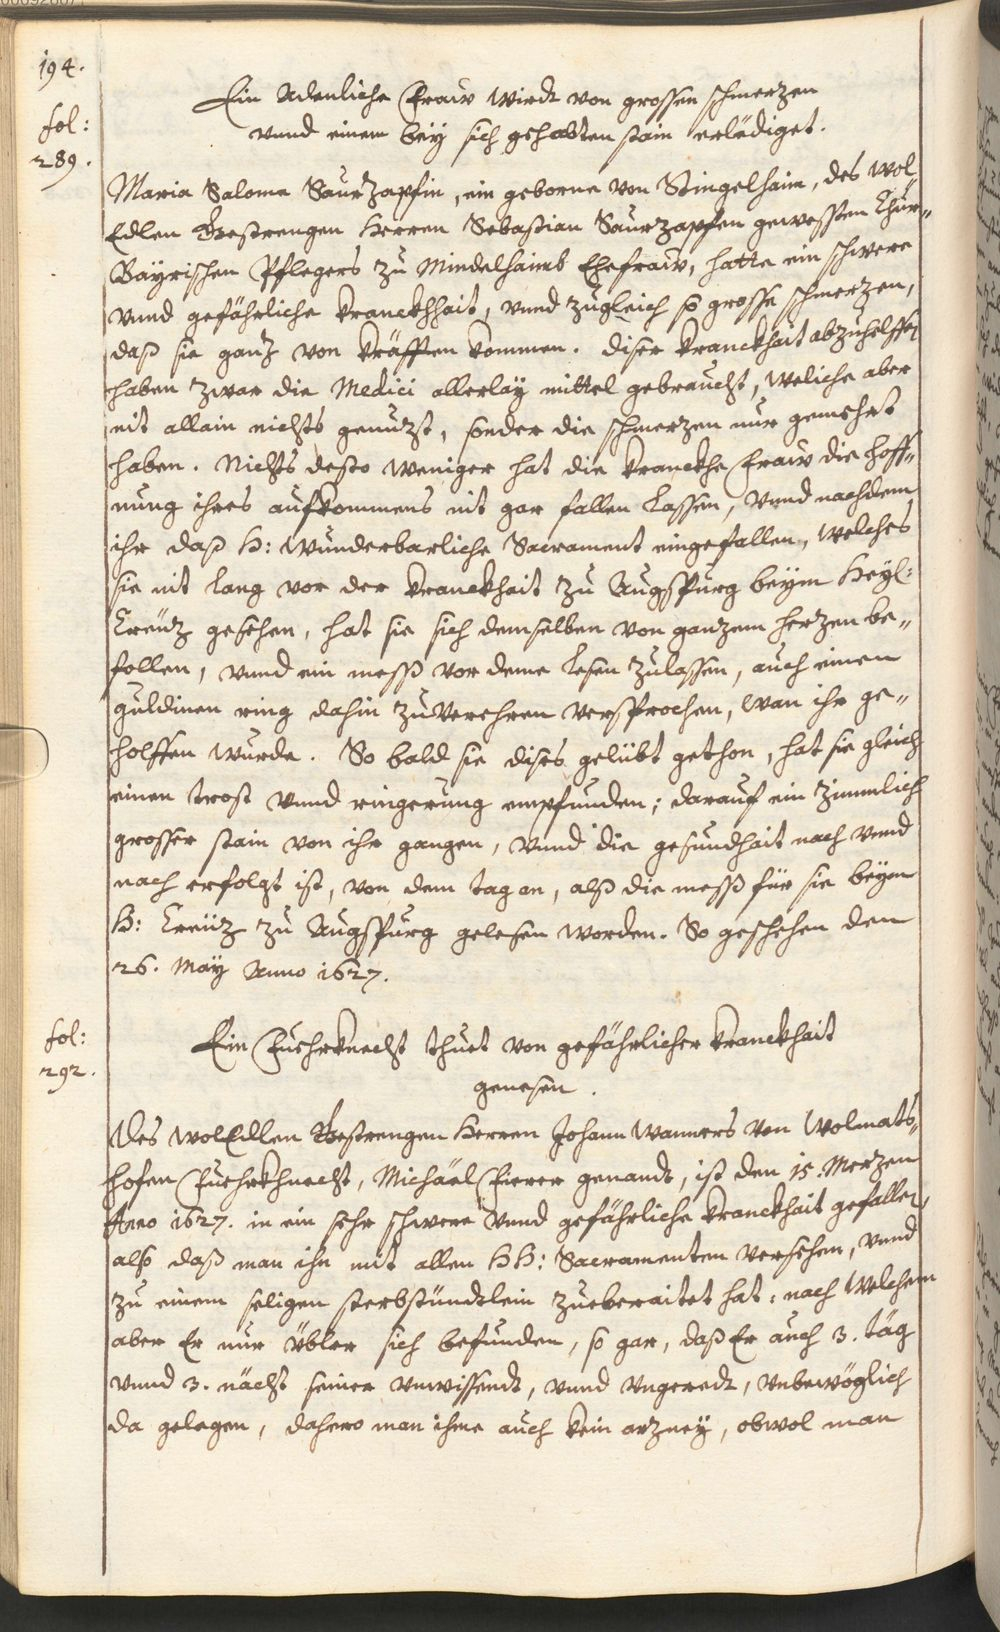 194.
fol:
289.
Ein Adenliche Fraw wirdt von grossen schmerzen
vnnd einem bey sich gehabten stain erlediget.
Maria Salome Saurzapfin, ein geborne von Stingelhaim, des Wol
Edlen Gestrengen Herren Sebastian Saurzapfen gewessten Chur„
Bayrischen Pflegers zu Mindelhaimb Ehefraw, hatte ein schwere
vnnd gefährliche kranckhhait, vnnd zugleich so grosse schmerzen,
daß sie ganz von kräfften kommen. diser kranckhait abzuhelffen
haben zwar die Medici allerlaÿ mittel gebraucht, weliche aber
nit allain nichts genuzst, sonder die schmerzen nur gemehrt
haben. Nichts desto weniger hat die kranckhe Fraw die hoff„
nung ihres aufkommens nit gar fallen lassen, vnnd nachdem
ihr daß H: wunderbarliche Sacrament eingefallen, welches
sie nit lang vor der kranckhait zu Augspurg beÿm Heÿl:
Creüz gesehen, hat sie sich demselben von ganzem herzen be„
follen, vnnd ein mesß vor deme lesen zulassen, auch einen
guldinen ring dahin zuverehren versprochen, wan ihr ge„
holffen wurde. So bald sie dises gelübt gethon, hat sie gleich
einen trost vnnd ringerung empfunden; darauf ein zimmlich
grosser stain von ihr gangen, vnnd die gesundhait nach vnnd
nach erfolgt ist, von dem tag an, alß die mesß für sie beÿm
H: Creüz zu Augspurg gelesen worden. So geschehen den
26. Maÿ Anno 1627.
fol:
292.
Ein Fuehrknecht thuet von gefährlicher kranckhait
genesen.
Des WolEdlen Gestrengen Herren Johann Wanners von Wolmats„
hofen Fuehrkhnecht, Michäel Fierer genandt, ist den 15. Merzen
Anno 1627. in ein sehr schwere vnnd gefährliche kranckhait gefallen,
also daß man ihn mit allen HH: Sacramenten versehen, vnnd
zu einem seligen sterbstündtlein zueberaitet hat: nach welchem
aber Er nur übler sich befunden, so gar, daß Er auch 3. täg
vnnd 3. nächt seiner vnwissendt, vnnd vngeredt, vnbewöglich
da gelegen, dahero man ihme auch kein arzneÿ, obwol man